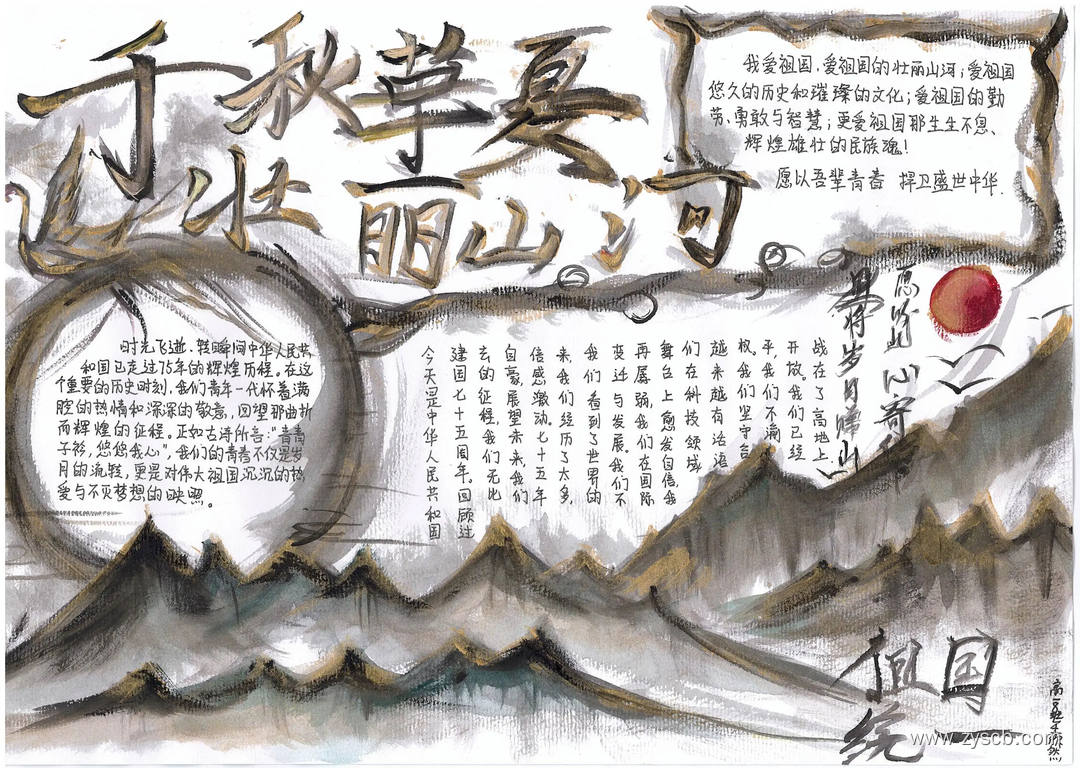 千秋華夏
壮丽山河
我爱祖国，爱祖国的壮丽山河；爱祖国
悠久的历史和璀璨的文化；爱祖国的勤
劳、勇敢与智慧；更爱祖国那生生不息、
辉煌雄壮的民族魂！
愿以吾辈青春 捍卫盛世中华.
时光飞逝，转瞬间中华人民共
和国已走过75年的辉煌历程。在这
个重要的历史时刻，我们青年一代怀着满
腔的热情和深深的敬意，回望那曲折
而辉煌的征程。正如古诗所言："青青
子衿，悠悠我心"，我们的青春不仅是岁
月的流转，更是对伟大祖国沉沉的热
爱与不灭梦想的映照。
今天是中华人民共和国
建国七十五周年。回顾过
去的征程，我们无比
自豪，展望未来，我们
倍感激动。七十五年
来，我们经历了太多，
我们看到了世界的
变迁与发展。我们不
再孱弱，我们在国际
舞台上愈发自信，我
们在科技领域
越来越有治语
权。我们坚守台
平，我们不渝
开放。我们已经
战在了高地上
且将岁月赠山
心寄
祖国
统一
www.zyscb.com